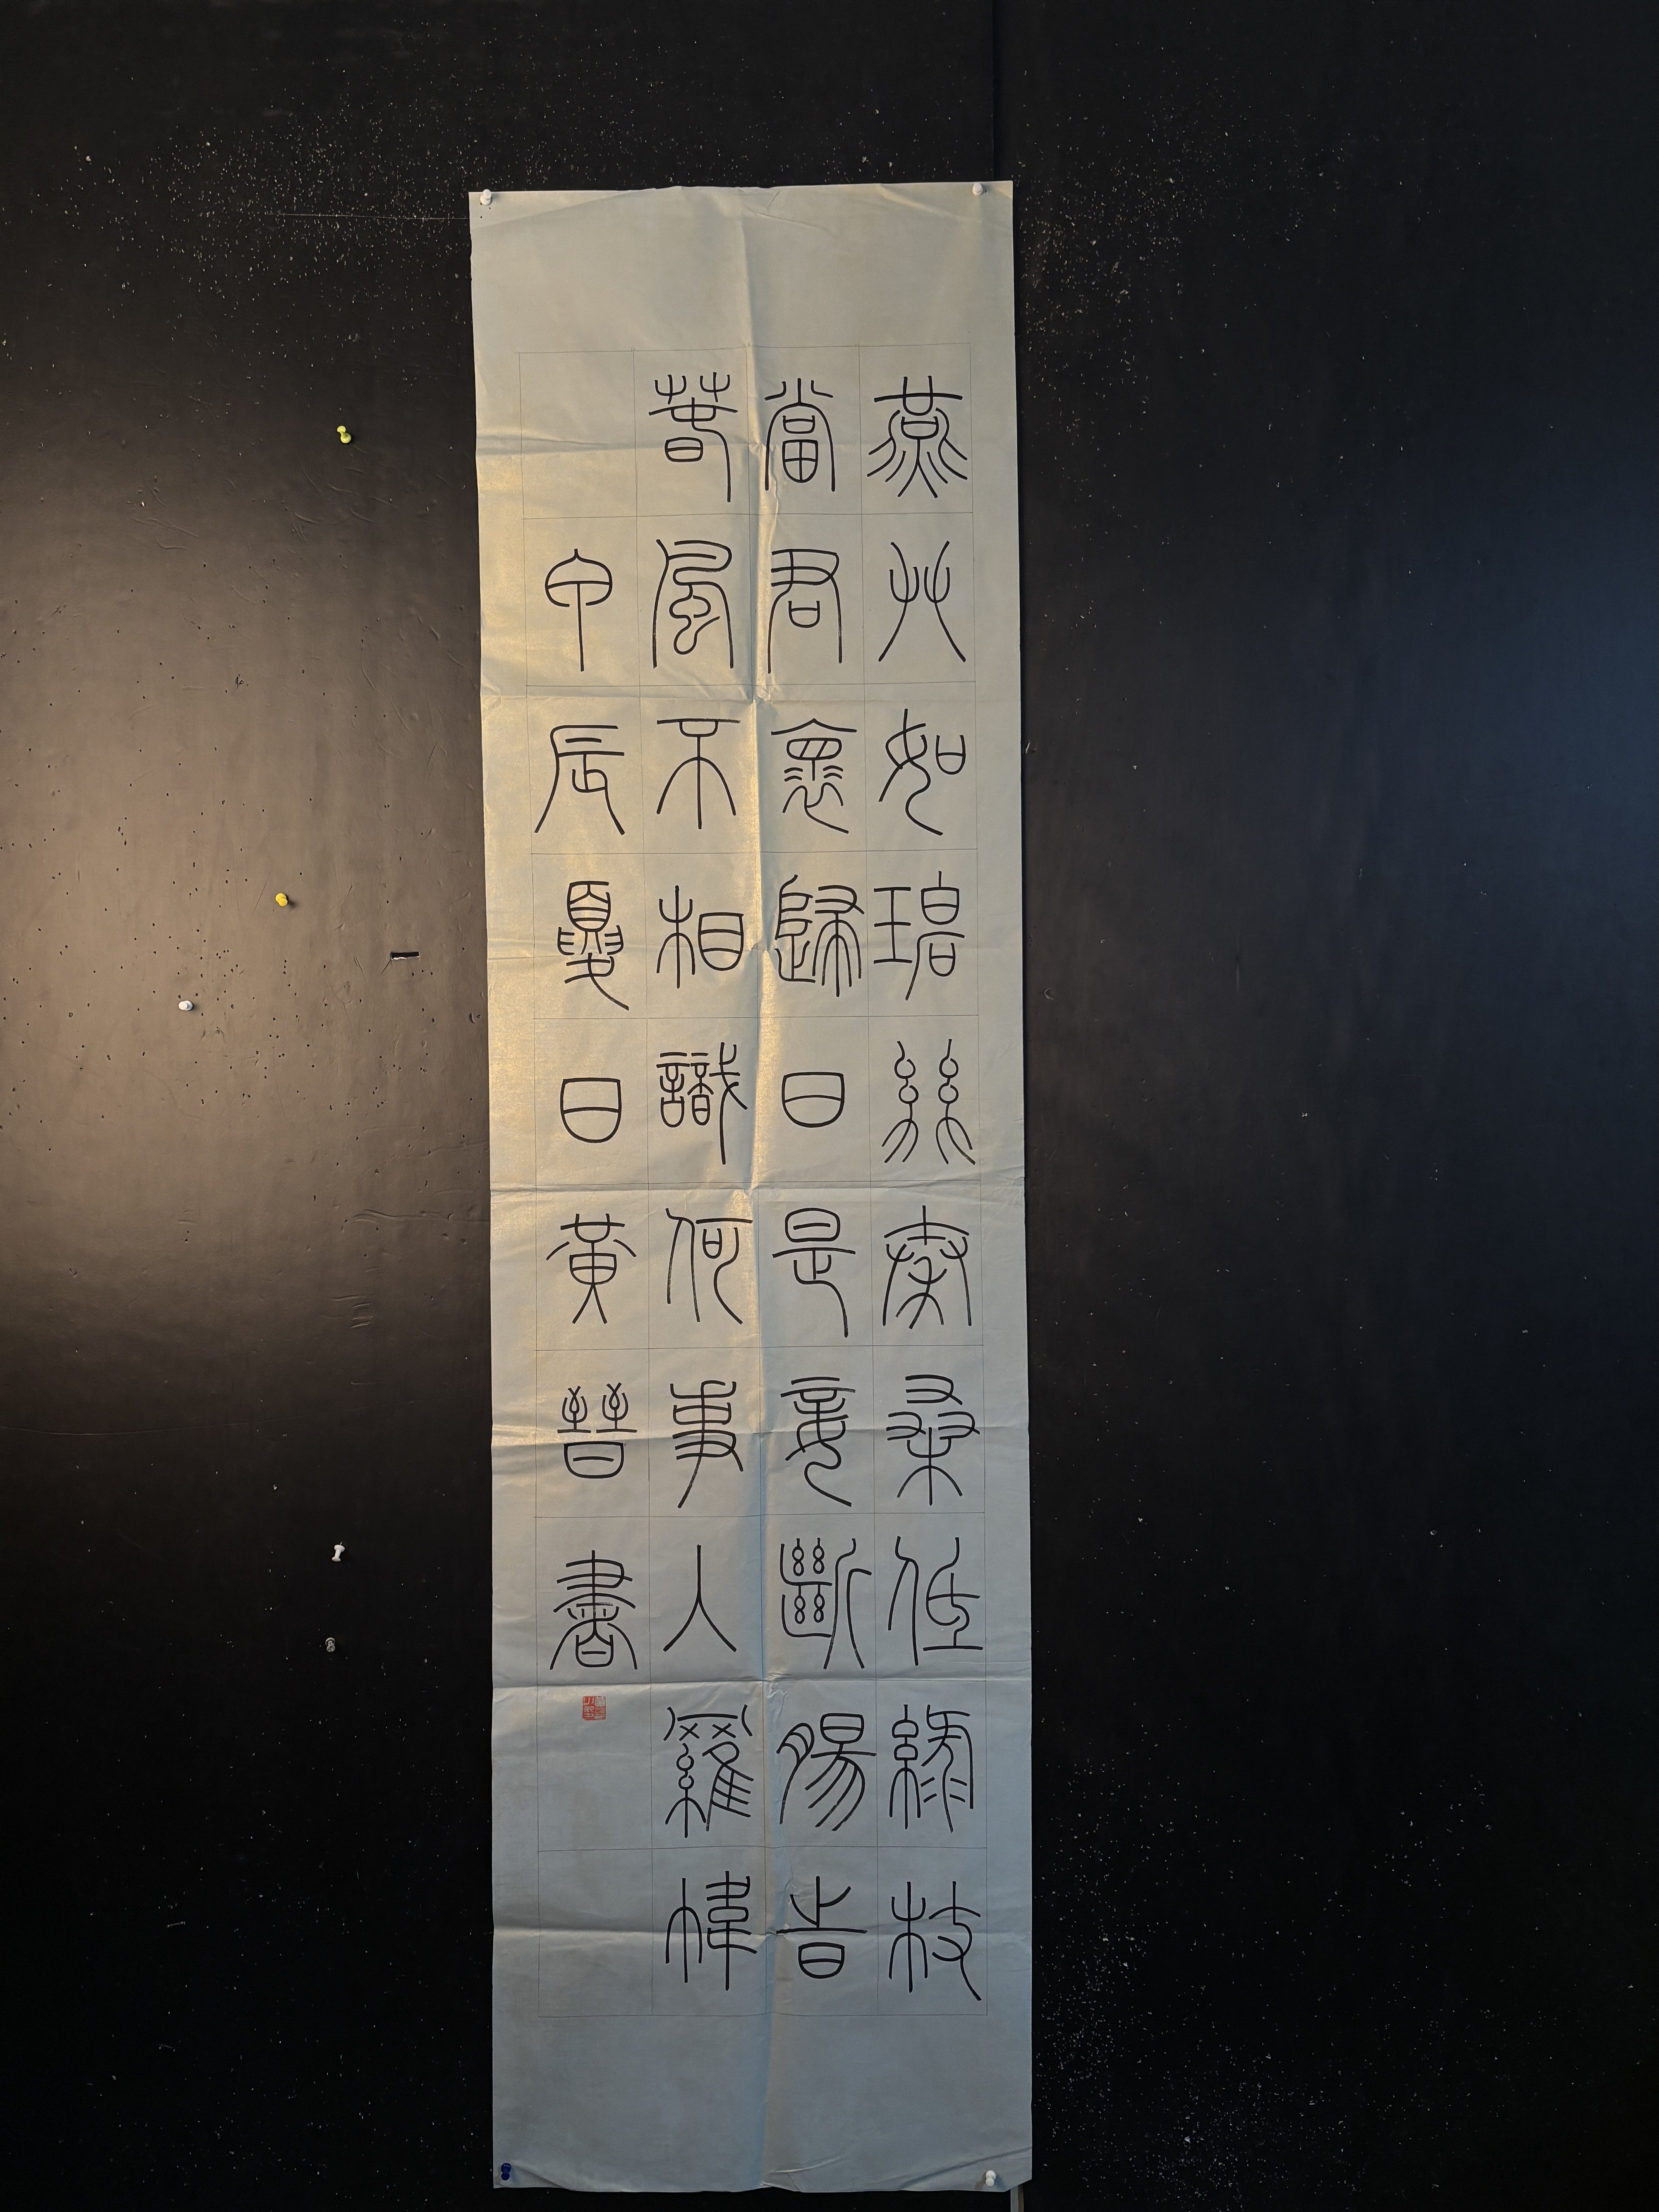 燕艸如碧絲秦桑低綠枝
當君褱歸日是妾斷腸旹
春風不相識何事入羅幃
甲辰夏日黃晉書